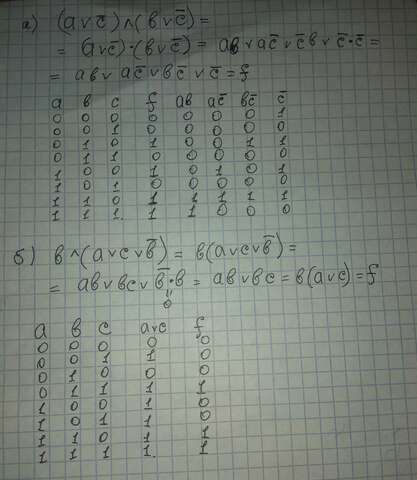 а) (a ∨ c̅) ∧ (в ∨ c̅) =
= (a ∨ c̅)·(в ∨ c̅) = aв ∨ ac̅ ∨ c̅в ∨ c̅·c̅ =
= aв ∨ ac̅ ∨ вc̅ ∨ c̅ = f
a в c f aв ac̅ вc̅ c̅
0 0 0 0 0 0 0 1
0 0 1 0 0 0 0 0
0 1 0 1 0 0 1 1
0 1 1 0 0 0 0 0
1 0 0 1 0 1 0 1
1 0 1 0 0 0 0 0
1 1 0 1 1 1 1 1
1 1 1. 1 1 0 0 0
б) в ∧ (a ∨ c ∨ в̅) = в(a ∨ c ∨ в̅) =
= aв ∨ вc ∨ в̅·в = aв ∨ вc = в(a ∨ c) = f
"
0
a в c a∨c f
0 0 0 0 0
0 0 1 1 0
0 1 0 0 0
0 1 1 1 1
1 0 0 1 0
1 0 1 1 0
1 1 0 1 1
1 1 1 1. 1